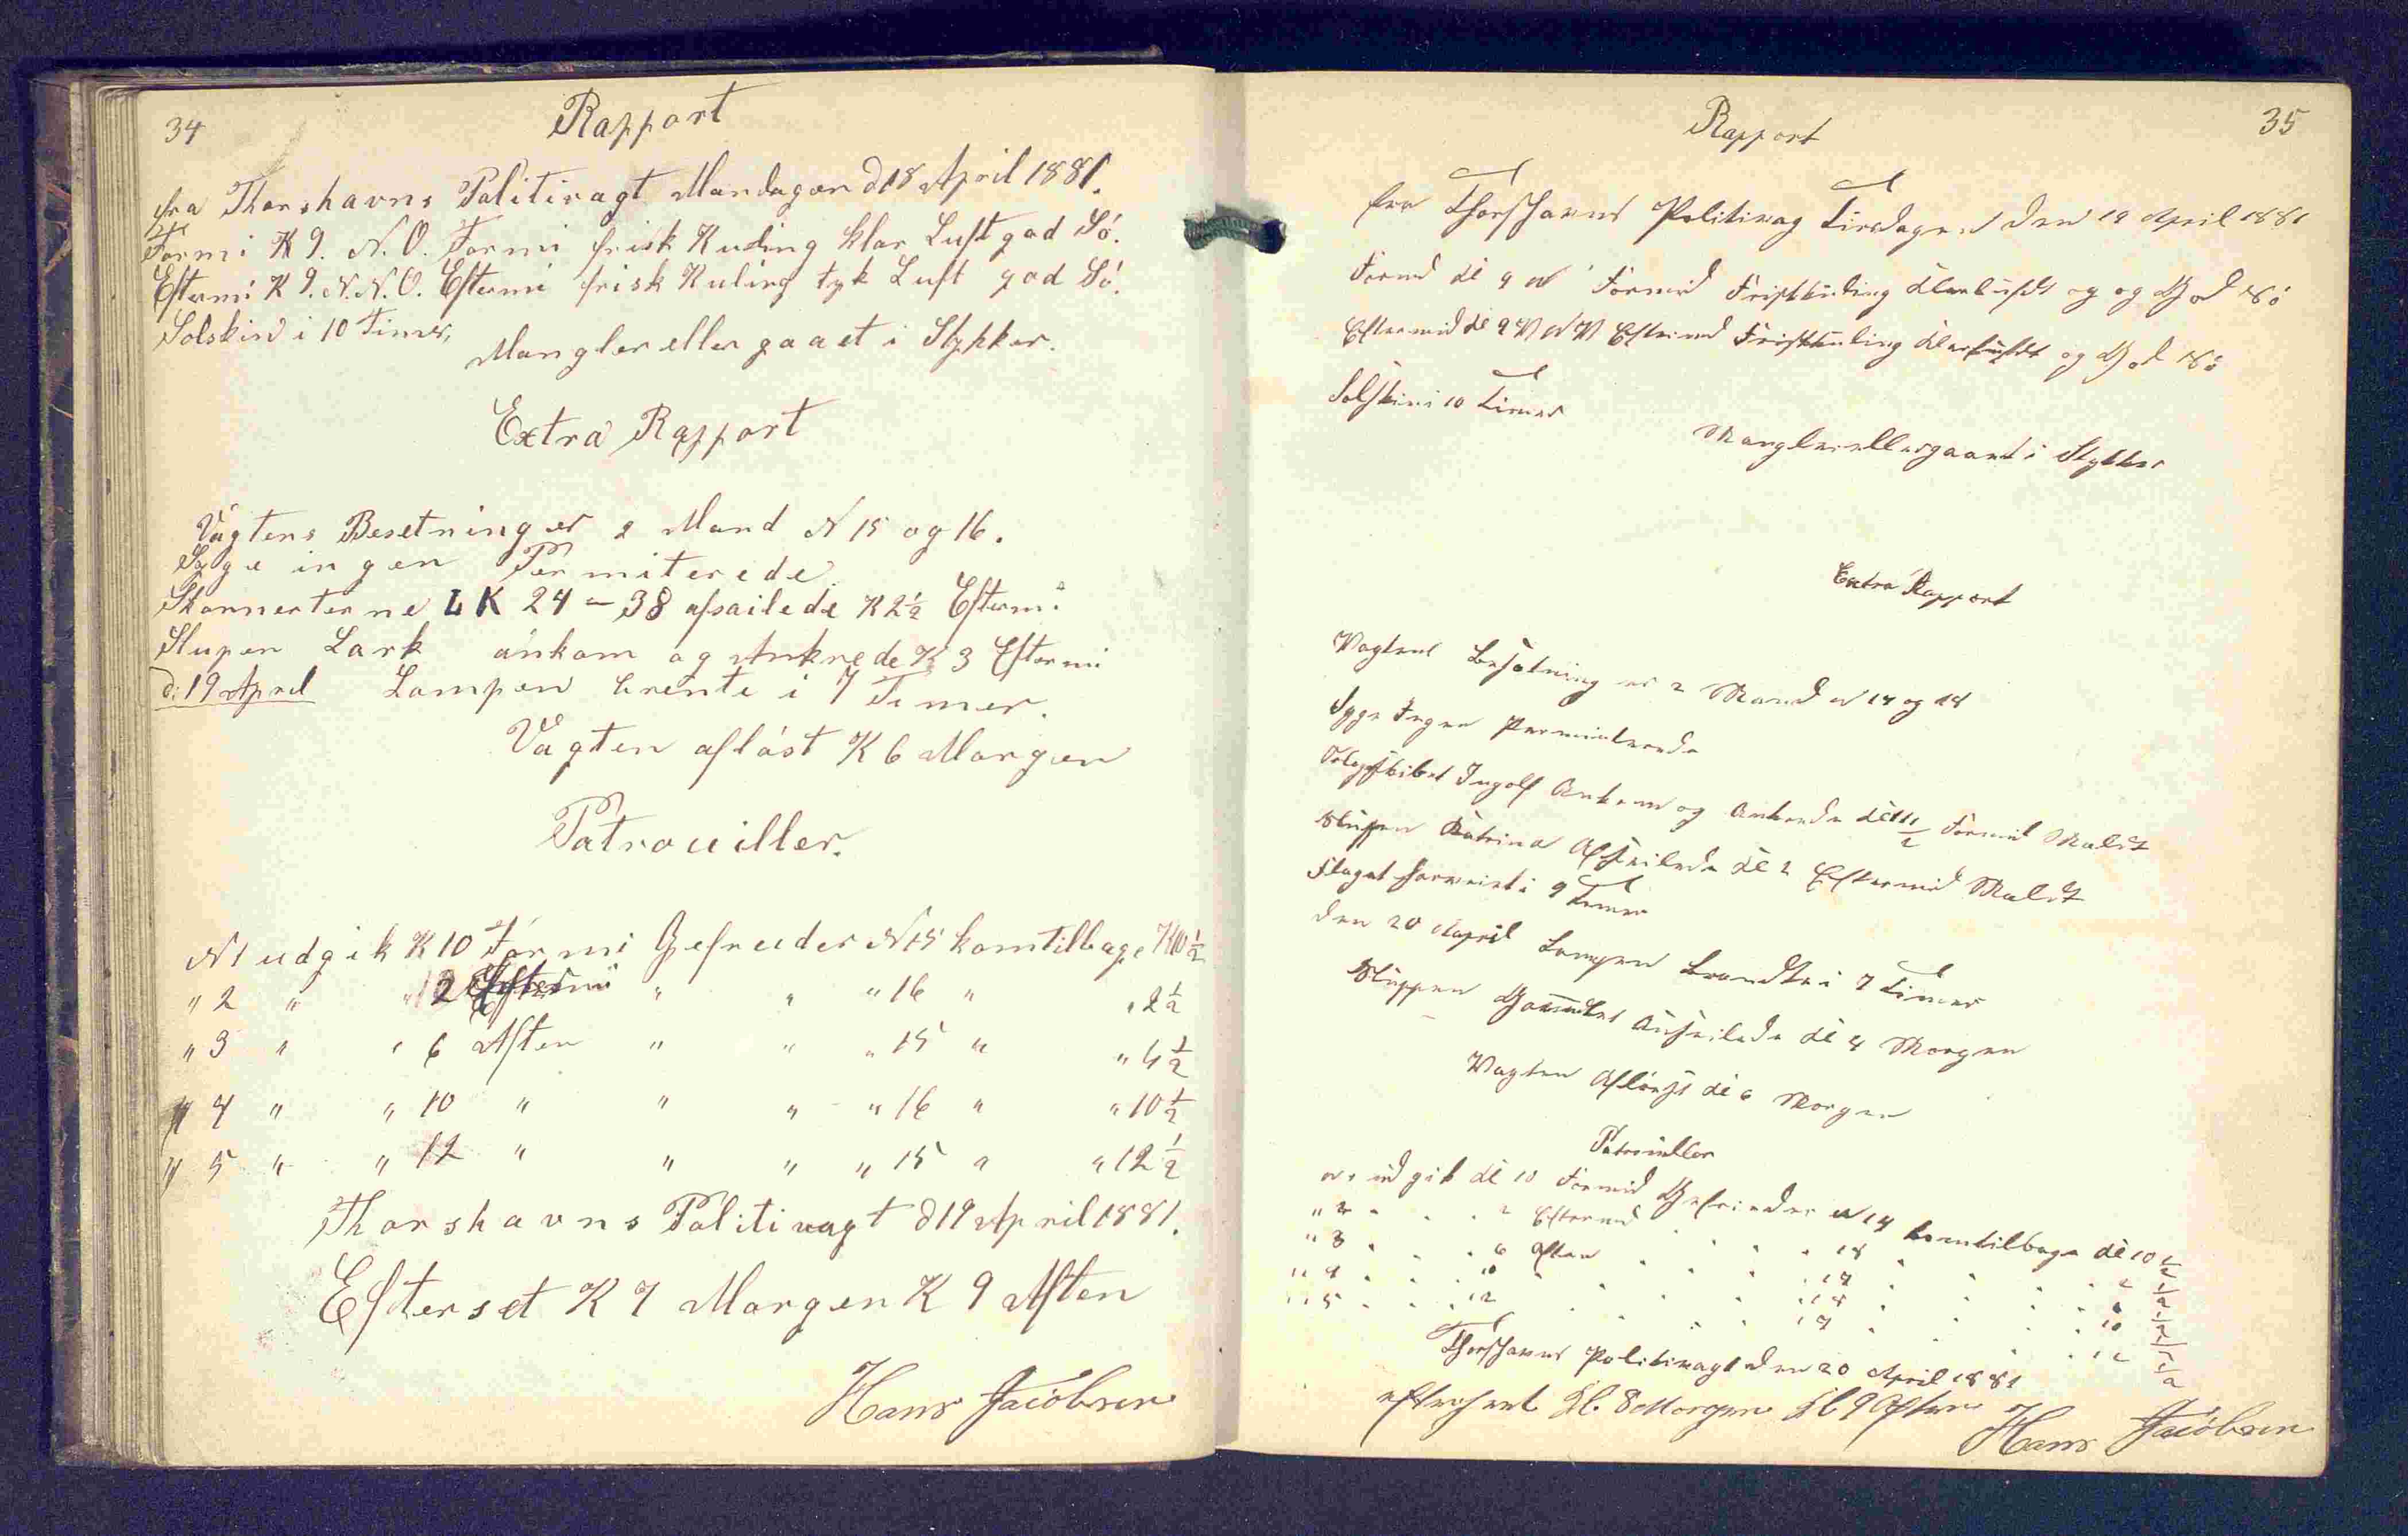 34
Rapport
fra Thorshavns Politivagt Mandagen d 18 April 1881.
Formi K 9. N.O. Formi frisk Kuding klar Luft god Sö.
Eftermi K 9. N.N.O. Eftermi frisk Kuling tyk Luft god Sö.
Solskin i 10 Timer,
Mangler eller gaaet i Stykker.
Extra Rapport
Vagtens Besetning er 2 Mand N 15 og 16.
Syge ingen Permiterede
Skonnerterne LK 24 - 38 afsailede K 2½ Eftermi
Slupen Lark ankom og Ankrede K 3 Eftermi
d: 19 April Lampen brente i 7 Timer.
Vagten aflöst K 6 Morgen
Patrouiller.
N 1 udgik K 10 Formi Gefreider N 15 kom tilbage K 10½
" 2 " " 2 Eftermi " " " 16 " " 2½
" 3 " " 6 Aften " " " 15 " " 6½
" 4 " " 10 " " " " 16 " " 10½
" 5 " " 12 " " " " 15 " " 12½
Thorshavns Politivagt d 19 April 1881.
Efterset K 7 Morgen K 9 Aften
Hans Jacobsen
35
Rapport
fra Thorshavns Politivag Tirsdagen den 19 April 1881
Formd Kl 9 N Formid Friskkuling Klarluft og og God Sö
Eftermid Kl 9 V N V Eftermd Friskkuling Klarluft og God Sö
Solskin i 10 Timer
Mangler ellergaaet i Stykker
Extra Rapport
Vagtens Besætning er 2 Mand N 17 og 18
Syge Ingen Permiterede
Ingolf Ankom og Ankrede Kl 11½ Formid
Sluppen Katrina Afseilede Kl 2 Eftermid
Flaget har veiet i 9 Timer
den 20 April Lampen brendte i 7 Timer
Sluppen Afseilede Kl 4 Morgen
Vagten Aflöst Kl 6 Morgen
Patrouiller
N 1 ud gik Kl 10 Formid Gefreider N 17 kom tilbage Kl 10½
" 2 " " " 2 Eftermd " " " 18 " " " 2½
" 3 " " " 6 Aften " " " 17 " " " 6½
" 4 " " " 10 " " " " 18 " " " 10½
" 5 " " " 12 " " " " 17 " " " 12½
Thorshavns Politivagt den 20 April 1881
efterseet Kl. 8 Morgen Kl 9 Aften
Hans Jacobsen